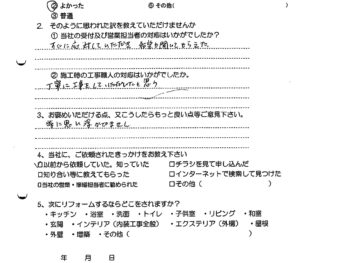 ②よかった　⑤その他(　　　)
③普通
2．そのように思われた訳を教えていただけませんか
①当社の受付及び営業担当者の対応はいかがでしたか?
すぐに応対していただき 希望を聞いてもらえた
②施工時の工事職人の対応はいかがでしたか。
丁寧に工事をしていただいたと思う
3、お褒めいただける点、又こうしたらもっと良い点等ご意見下さい。
特に思い浮かびません
4、当社に、ご依頼されたきっかけをお教え下さい
☐以前から依頼していた。知っていた　☐チラシを見て申し込んだ
☐知り合い等に教えてもらった　☐インターネットで検索して見つけた
☐当社の営業・現場担当者に勧められた　☐その他(　　　)
5、次にリフォームするならどこをされますか?
・キッチン　・浴室　・洗面　・トイレ　・子供室　・リビング　・和室
・玄関　・インテリア(内装工事全般)　・エクステリア(外構)　・屋根
・外壁　・増築　・その他(　　　)
年　月　日